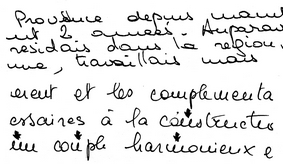 Provence depuis main
nt 2 années. Aupara
résidais dans la région,
nne, travaillais mais
ement et les complementa
essaires à la constructio
un couple harmonieux e